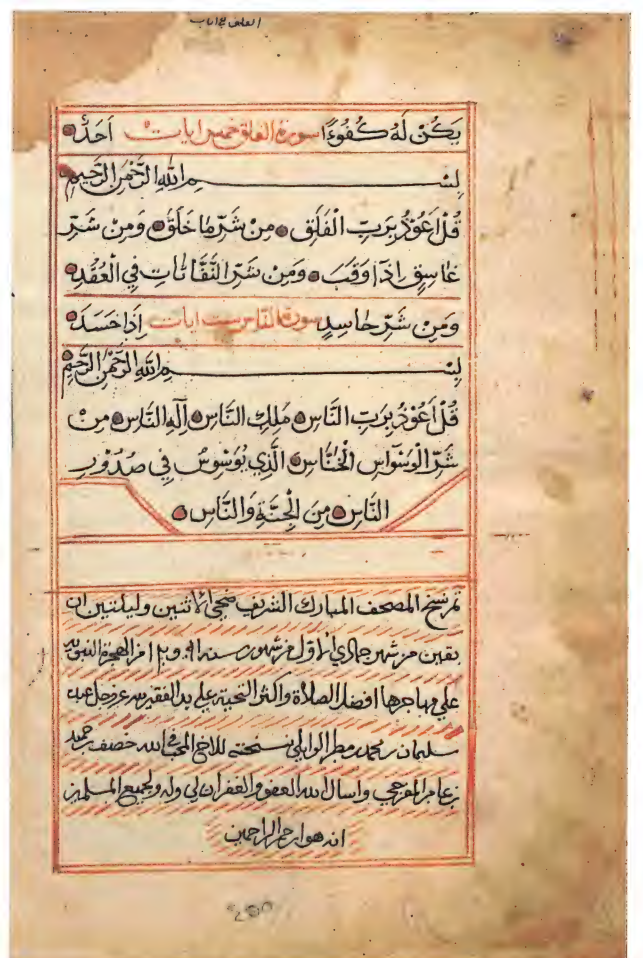 يَكُنْ لَهُ كُفُوءًا سورة الفلق خمس ايات اَحَدٌ
بِسْمِ اللهِ الرَّحْمٰنِ الرَّحِيمِ
قُلْ اَعُوْذُ بِرَبِّ الْفَلَقِ مِنْ شَرِّ مَا خَلَقَ وَمِنْ شَرِّ
غَاسِقٍ اِذَا وَقَبَ وَمِنْ شَرِّ النَّفَّاثَاتِ فِي الْعُقَدِ
وَمِنْ شَرِّ حَاسِدٍ سورة الناس ست ايات اِذَا حَسَدَ
بِسْمِ اللهِ الرَّحْمٰنِ الرَّحِيمِ
قُلْ اَعُوْذُ بِرَبِّ النَّاسِ مَلِكِ النَّاسِ اِلٰهِ النَّاسِ مِنْ
شَرِّ الْوَسْوَاسِ الْخَنَّاسِ الَّذِي يُوَسْوِسُ فِي صُدُوْرِ
النَّاسِ مِنَ الْجِنَّةِ وَالنَّاسِ
تم نسخ المصحف المبارك الشريف ضحى الاثنين وليلتين ان
بقين من شهر جمادي الاول من شهور سنة من الهجرة النبويه
علي مهاجرها افضل الصلاة واكثر التحية علي يد الفقير لله عز وجل عبده
سليمان بن محمد بن مطر الوايلي نسخته للاخ المحب في الله خصيف بن حميد
بن عامر المفرجي واسال الله العفو والغفران لي وله ولجميع المسلمين
انه هو ارحم الراحمين